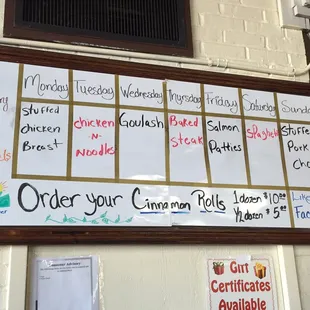 Monday Tuesday Wednesday Thursday Friday Saturday Sunday
Stuffed chicken Breast
chicken -N- Noodles
Goulash
Baked Steak
Salmon Patties
Spaghetti
Stuffed Pork Cho
Order your Cinnamon Rolls
1 dozen $10.00
1/2 dozen $5.00
Like
Fac
Gift
Certificates
Available